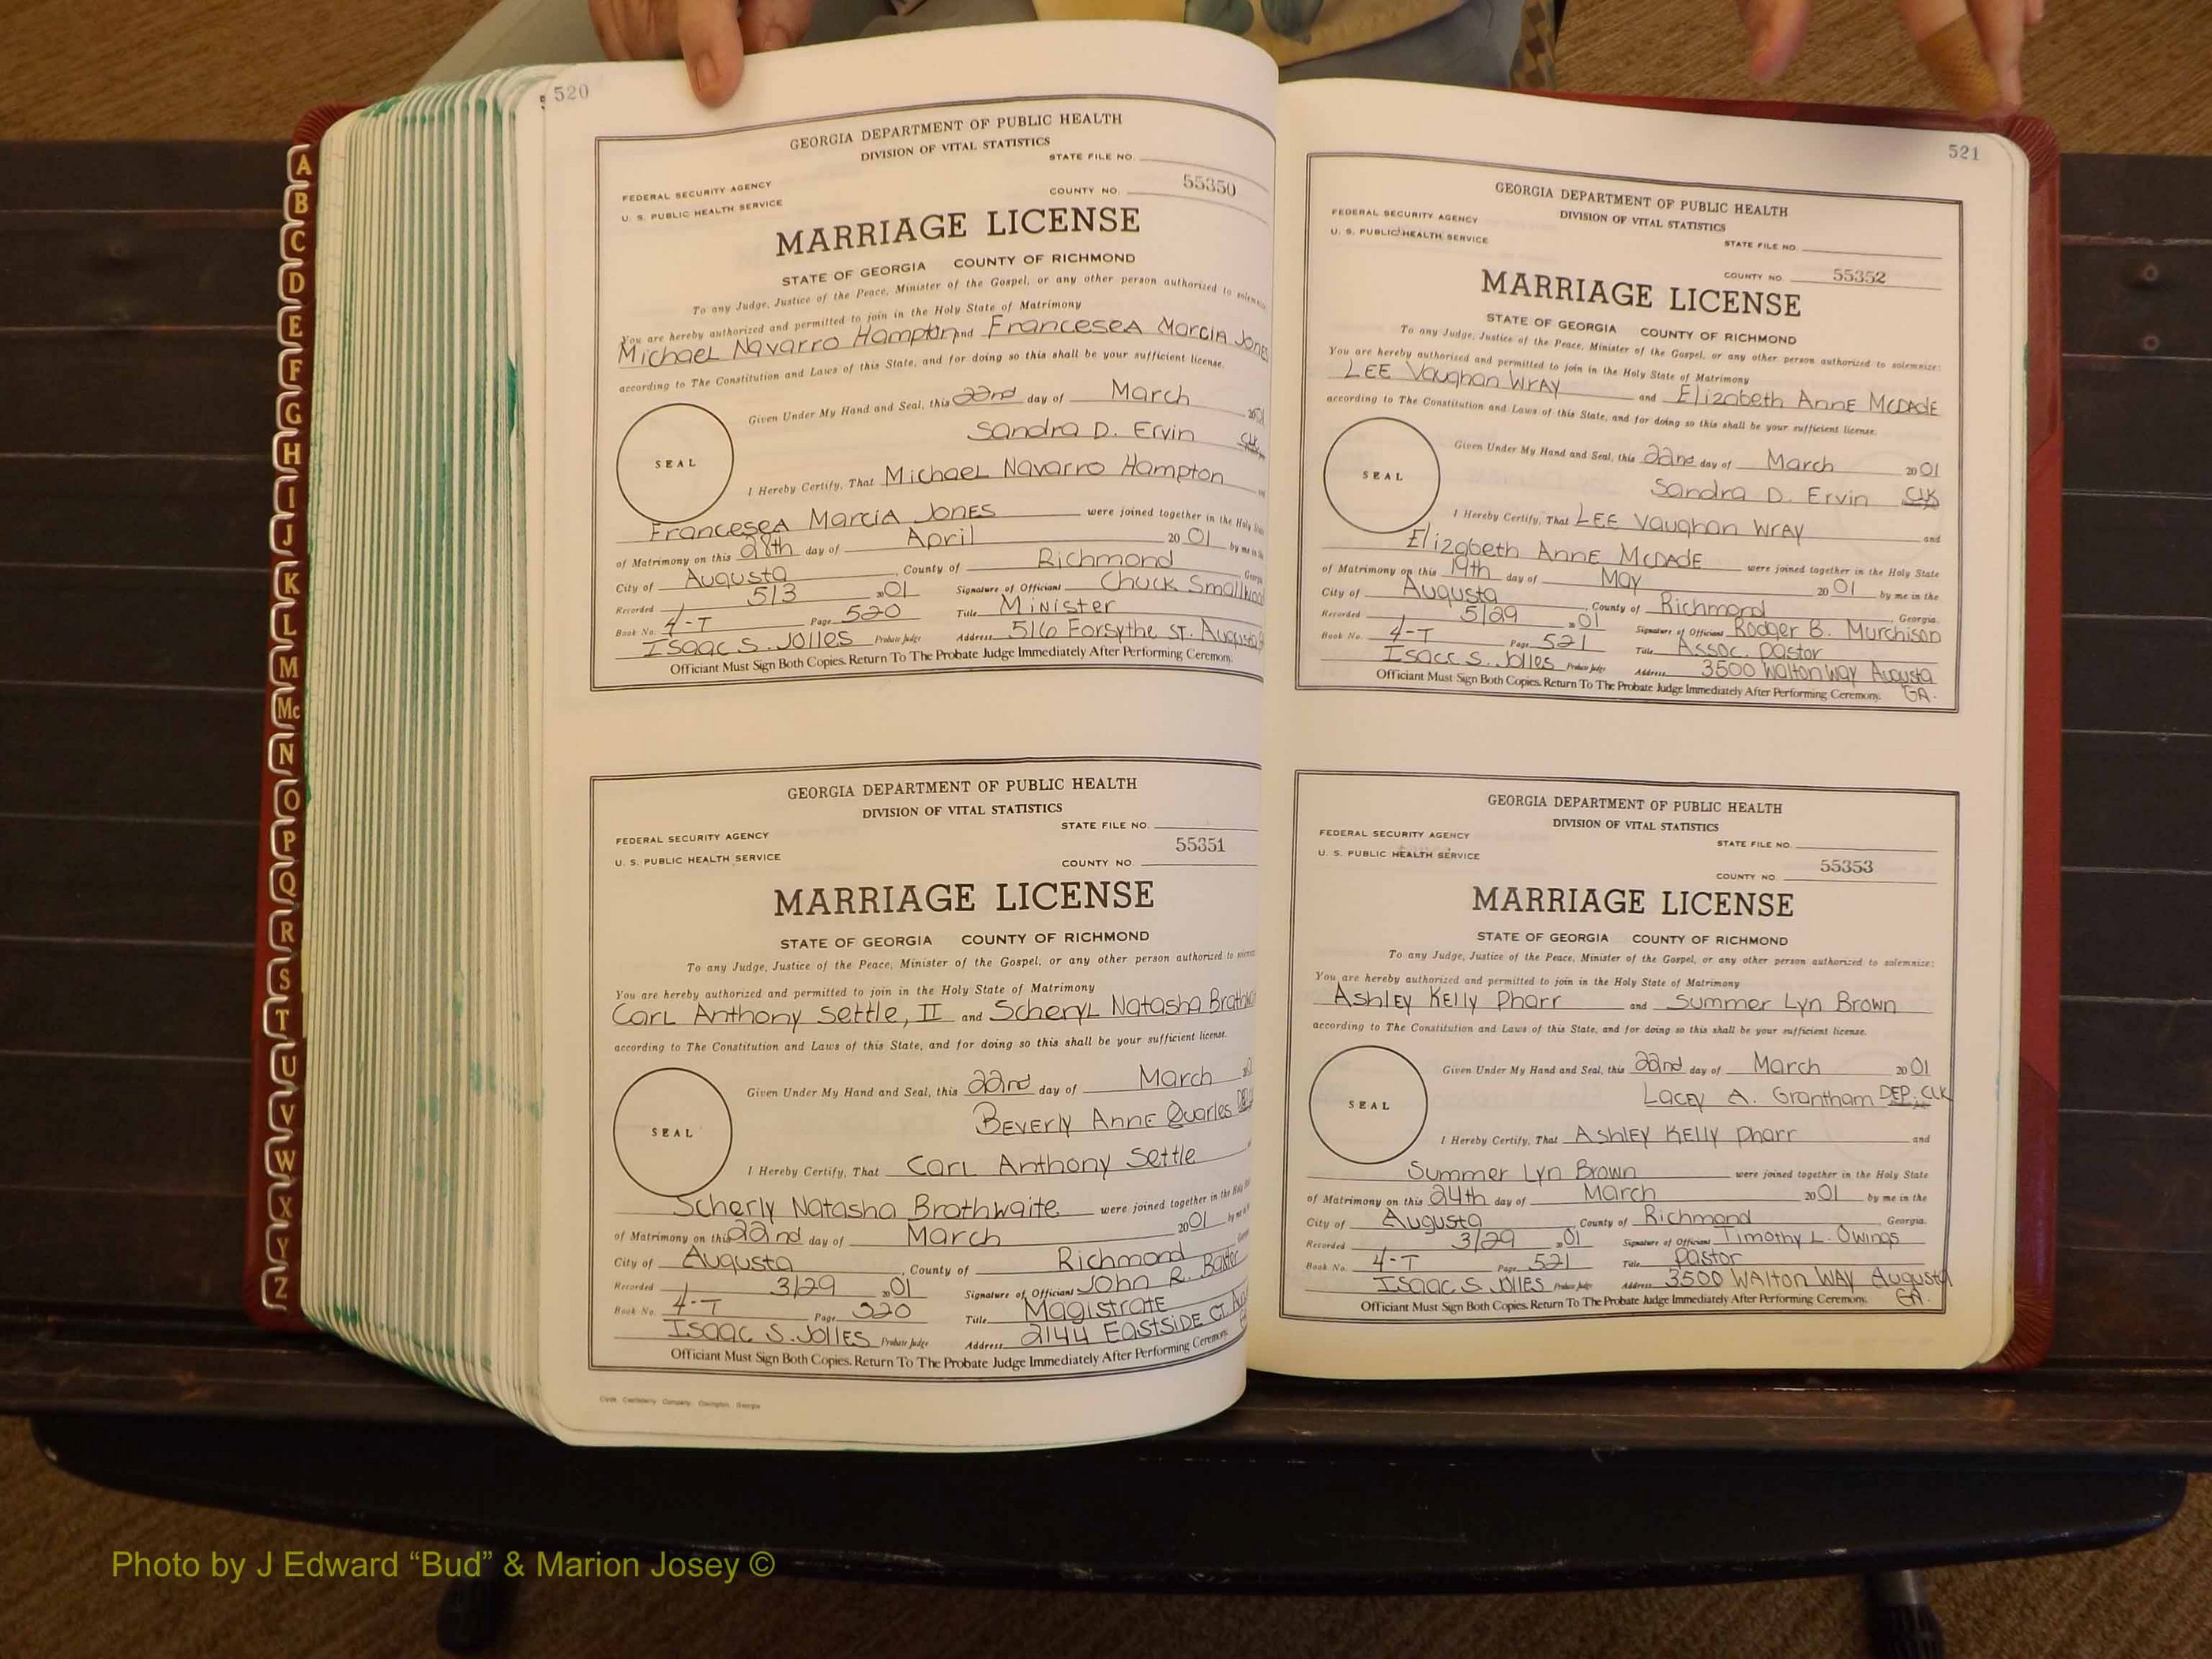 A
B
C
D
E
F
G
H
I
J
K
L
M
Mc
N
O
P
Q
R
S
T
U
V
W
X
Y
Z
520
GEORGIA DEPARTMENT OF PUBLIC HEALTH
DIVISION OF VITAL STATISTICS
STATE FILE NO.
FEDERAL SECURITY AGENCY
U. S. PUBLIC HEALTH SERVICE
COUNTY NO. 55350
MARRIAGE LICENSE
STATE OF GEORGIA COUNTY OF RICHMOND
To any Judge, Justice of the Peace, Minister of the Gospel, or any other person authorized to
You are hereby authorized and permitted to join in the Holy State of Matrimony
Michael Navarro Hampton and Francesea Marcia Jones
according to The Constitution and Laws of this State, and for doing so this shall be your sufficient license.
Given Under My Hand and Seal, this 22nd day of March 2001
Sandra D. Ervin Clk
SEAL
I Hereby Certify, That Michael Navarro Hampton
Francesea Marcia Jones were joined together in the Holy
of Matrimony on this 28th day of April 2001 by me in the
City of Augusta, County of Richmond
Recorded 5/3 2001 Signature of Officiant Chuck Smallwood
Book No. 4-T Page 520 Title Minister
Isaac S. Jolles Probate Judge Address 516 Forsythe St. Augusta
Officiant Must Sign Both Copies. Return To The Probate Judge Immediately After Performing Ceremony.
GEORGIA DEPARTMENT OF PUBLIC HEALTH
DIVISION OF VITAL STATISTICS
STATE FILE NO.
FEDERAL SECURITY AGENCY
U. S. PUBLIC HEALTH SERVICE
COUNTY NO. 55351
MARRIAGE LICENSE
STATE OF GEORGIA COUNTY OF RICHMOND
To any Judge, Justice of the Peace, Minister of the Gospel, or any other person authorized to
You are hereby authorized and permitted to join in the Holy State of Matrimony
Carl Anthony Settle, II and Scheryl Natasha
according to The Constitution and Laws of this State, and for doing so this shall be your sufficient license.
Given Under My Hand and Seal, this 22nd day of March
Beverly Anne Quarles
SEAL
I Hereby Certify, That Carl Anthony Settle
Scherly Natasha Brathwaite were joined together in the Holy
of Matrimony on this 22nd day of March 2001
City of Augusta, County of Richmond
Recorded 3/29 2001 Signature of Officiant John R. Baxter
Book No. 4-T Page 520 Title Magistrate
Isaac S. Jolles Probate Judge Address 2144 Eastside Ct.
Officiant Must Sign Both Copies. Return To The Probate Judge Immediately After Performing Ceremony.
521
GEORGIA DEPARTMENT OF PUBLIC HEALTH
DIVISION OF VITAL STATISTICS
STATE FILE NO.
FEDERAL SECURITY AGENCY
U. S. PUBLIC HEALTH SERVICE
COUNTY NO. 55352
MARRIAGE LICENSE
STATE OF GEORGIA COUNTY OF RICHMOND
To any Judge, Justice of the Peace, Minister of the Gospel, or any other person authorized to solemnize:
You are hereby authorized and permitted to join in the Holy State of Matrimony
Lee Vaughan Wray and Elizabeth Anne McDade
according to The Constitution and Laws of this State, and for doing so this shall be your sufficient license.
Given Under My Hand and Seal, this 22nd day of March 2001
Sandra D. Ervin Clk
SEAL
I Hereby Certify, That Lee Vaughan Wray and
Elizabeth Anne McDade were joined together in the Holy State
of Matrimony on this 19th day of May 2001 by me in the
City of Augusta, County of Richmond Georgia.
Recorded 5/29 2001 Signature of Officiant Rodger B. Murchison
Book No. 4-T Page 521 Title Assoc. Pastor
Isacc S. Jolles Probate Judge Address 3500 Walton Way Augusta GA.
Officiant Must Sign Both Copies. Return To The Probate Judge Immediately After Performing Ceremony.
GEORGIA DEPARTMENT OF PUBLIC HEALTH
DIVISION OF VITAL STATISTICS
STATE FILE NO.
FEDERAL SECURITY AGENCY
U. S. PUBLIC HEALTH SERVICE
COUNTY NO. 55353
MARRIAGE LICENSE
STATE OF GEORGIA COUNTY OF RICHMOND
To any Judge, Justice of the Peace, Minister of the Gospel, or any other person authorized to solemnize:
You are hereby authorized and permitted to join in the Holy State of Matrimony
Ashley Kelly Pharr and Summer Lyn Brown
according to The Constitution and Laws of this State, and for doing so this shall be your sufficient license.
Given Under My Hand and Seal, this 22nd day of March 2001
Lacey A. Grantham Dep. Clk
SEAL
I Hereby Certify, That Ashley Kelly Pharr and
Summer Lyn Brown were joined together in the Holy State
of Matrimony on this 24th day of March 2001 by me in the
City of Augusta, County of Richmond Georgia.
Recorded 3/29 2001 Signature of Officiant Timothy L. Owings
Book No. 4-T Page 521 Title Pastor
Isaac S. Jolles Probate Judge Address 3500 Walton Way Augusta GA.
Officiant Must Sign Both Copies. Return To The Probate Judge Immediately After Performing Ceremony.
Photo by J Edward “Bud” & Marion Josey ©